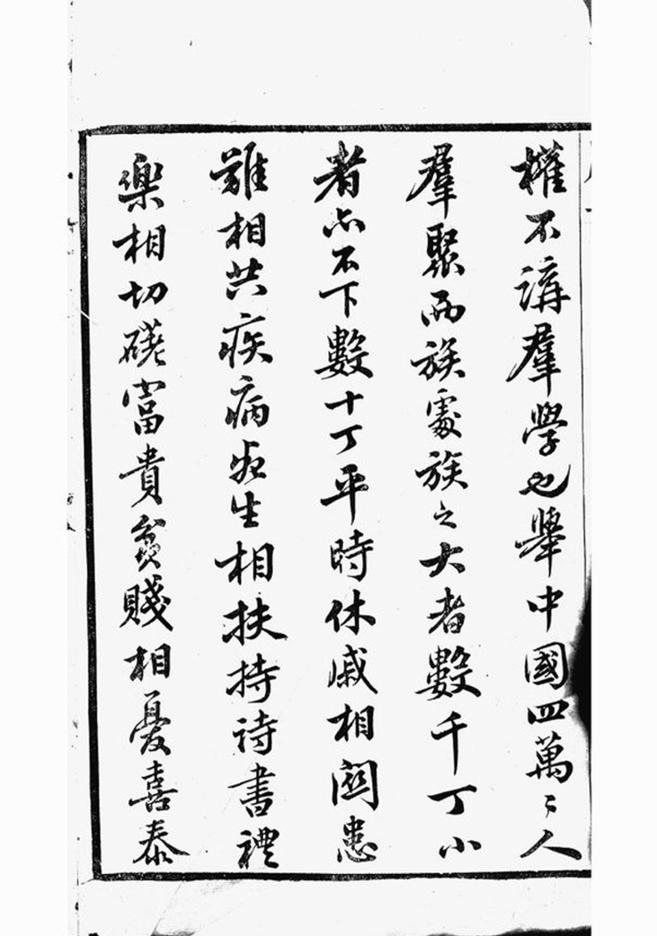 權不講羣學也舉中國四萬〻人
羣聚而族處族之大者數千丁小
者亦不下數十丁平時休戚相關患
難相共疾病死生相扶持詩書禮
樂相切磋富貴貧賤相憂喜泰